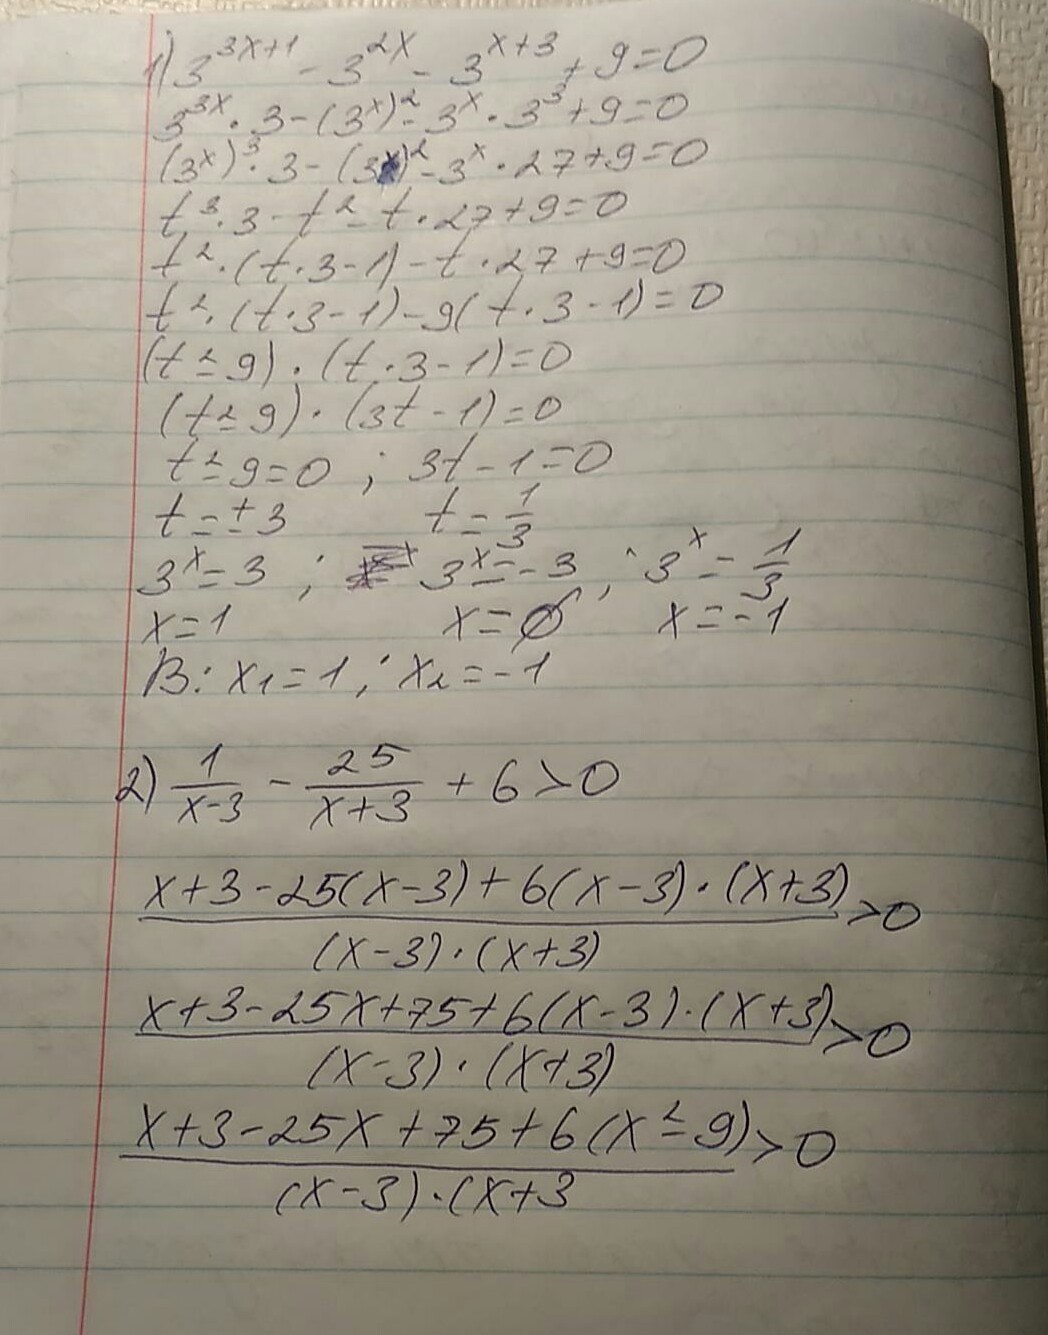 1) 3^{3x+1} - 3^{2x} - 3^{x+3} + 9 = 0
3^{3x} · 3 - (3^x)^2 - 3^x · 3^3 + 9 = 0
(3^x)^3 · 3 - (3^x)^2 - 3^x · 27 + 9 = 0
t^3 · 3 - t^2 - t · 27 + 9 = 0
t^2 · (t · 3 - 1) - t · 27 + 9 = 0
t^2 · (t · 3 - 1) - 9(t · 3 - 1) = 0
(t^2 - 9) · (t · 3 - 1) = 0
(t^2 - 9) · (3t - 1) = 0
t^2 - 9 = 0 ; 3t - 1 = 0
t = ±3 t = 1/3
3^x = 3 ; 3^x = -3 ; 3^x = 1/3
x = 1 x = ∅ x = -1
В: x₁ = 1 ; x₂ = -1
2) 1/(x-3) - 25/(x+3) + 6 > 0
x + 3 - 25(x - 3) + 6(x - 3) · (x + 3) > 0
(x - 3) · (x + 3)
x + 3 - 25x + 75 + 6(x - 3) · (x + 3) > 0
(x - 3) · (x + 3)
x + 3 - 25x + 75 + 6(x^2 - 9) > 0
(x - 3) · (x + 3